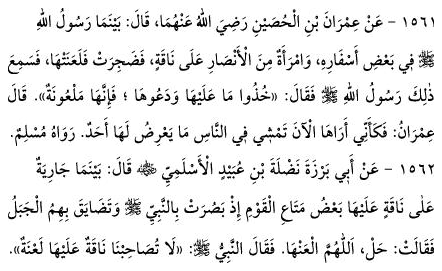 ١٥٦١ - عَنْ عِمْرَانَ بْنِ الْحُصَيْنِ رَضِيَ اللهُ عَنْهُمَا، قَالَ: بَيْنَمَا رَسُولُ اللهِ
ﷺ فِي بَعْضِ أَسْفَارِهِ، وَامْرَأَةٌ مِنَ الْأَنْصَارِ عَلَى نَاقَةٍ، فَضَجِرَتْ فَلَعَنَتْهَا، فَسَمِعَ
ذٰلِكَ رَسُولُ اللهِ ﷺ فَقَالَ: «خُذُوا مَا عَلَيْهَا وَدَعُوهَا ؛ فَإِنَّهَا مَلْعُونَةٌ». قَالَ
عِمْرَانُ: فَكَأَنِّي أَرَاهَا الْآنَ تَمْشِي فِي النَّاسِ مَا يَعْرِضُ لَهَا أَحَدٌ. رَوَاهُ مُسْلِمٌ.
١٥٦٢ - عَنْ أَبِي بَرْزَةَ نَضْلَةَ بْنِ عُبَيْدٍ الْأَسْلَمِيِّ ﷺ قَالَ: بَيْنَمَا جَارِيَةٌ
عَلٰى نَاقَةٍ عَلَيْهَا بَعْضُ مَتَاعِ الْقَوْمِ إِذْ بَصُرَتْ بِالنَّبِيِّ ﷺ وَتَضَايَقَ بِهِمُ الْجَبَلُ
فَقَالَتْ: حَلْ، اَللّٰهُمَّ الْعَنْهَا. فَقَالَ النَّبِيُّ ﷺ: «لَا تُصَاحِبْنَا نَاقَةٌ عَلَيْهَا لَعْنَةٌ».